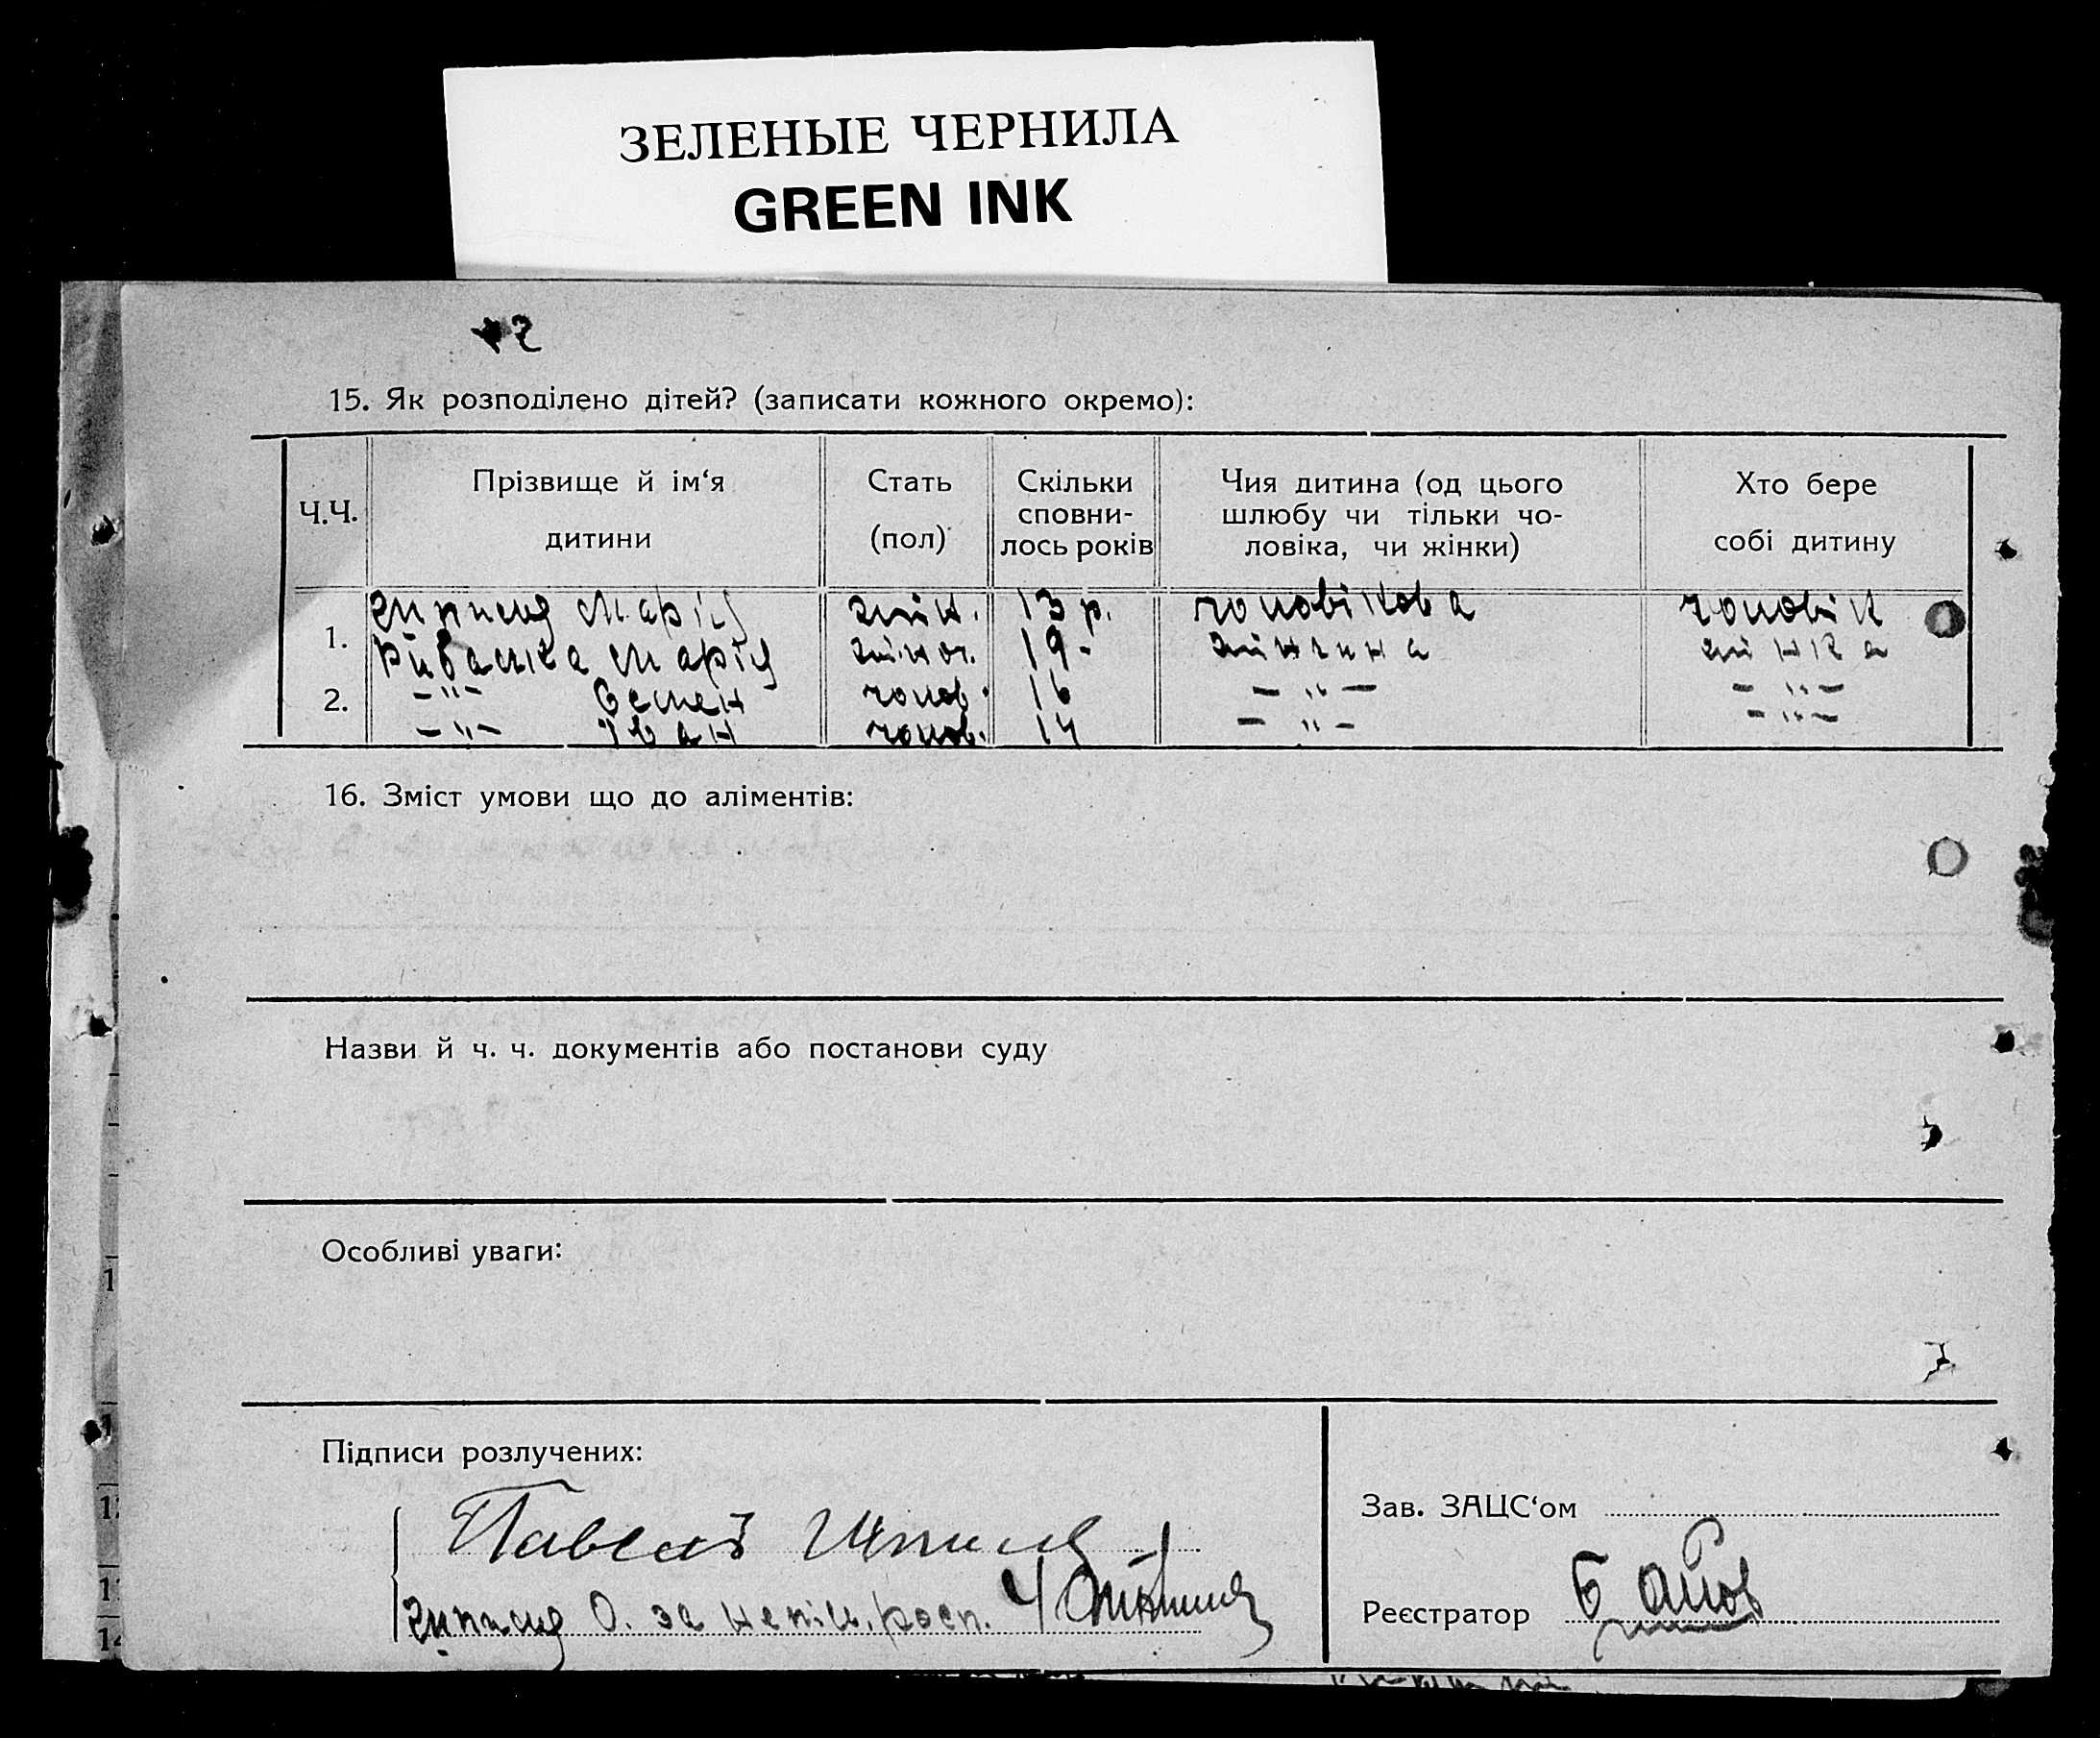 ЗЕЛЕНЫЕ ЧЕРНИЛА
GREEN INK
2
15. Як розподілено дітей? (записати кожного окремо):
Ч.Ч. Прізвище й ім‘я дитини Стать (пол) Скільки сповни-лось років Чия дитина (од цього шлюбу чи тільки чо-ловіка, чи жінки) Хто бере собі дитину
Марія жін. 13 р. чоловікова чоловік
1. Марія жіноч. 19 - жінчина жінка
2. -"- Семен чолов. 16 - " - - " -
-"- Іван чолов. 14 - " - - " -
16. Зміст умови що до аліментів:
Назви й ч. ч. документів або постанови суду
Особливі уваги:
Підписи розлучених:
Павелъ
О. за непись. росп.
Зав. ЗАЦС‘ом
Реєстратор